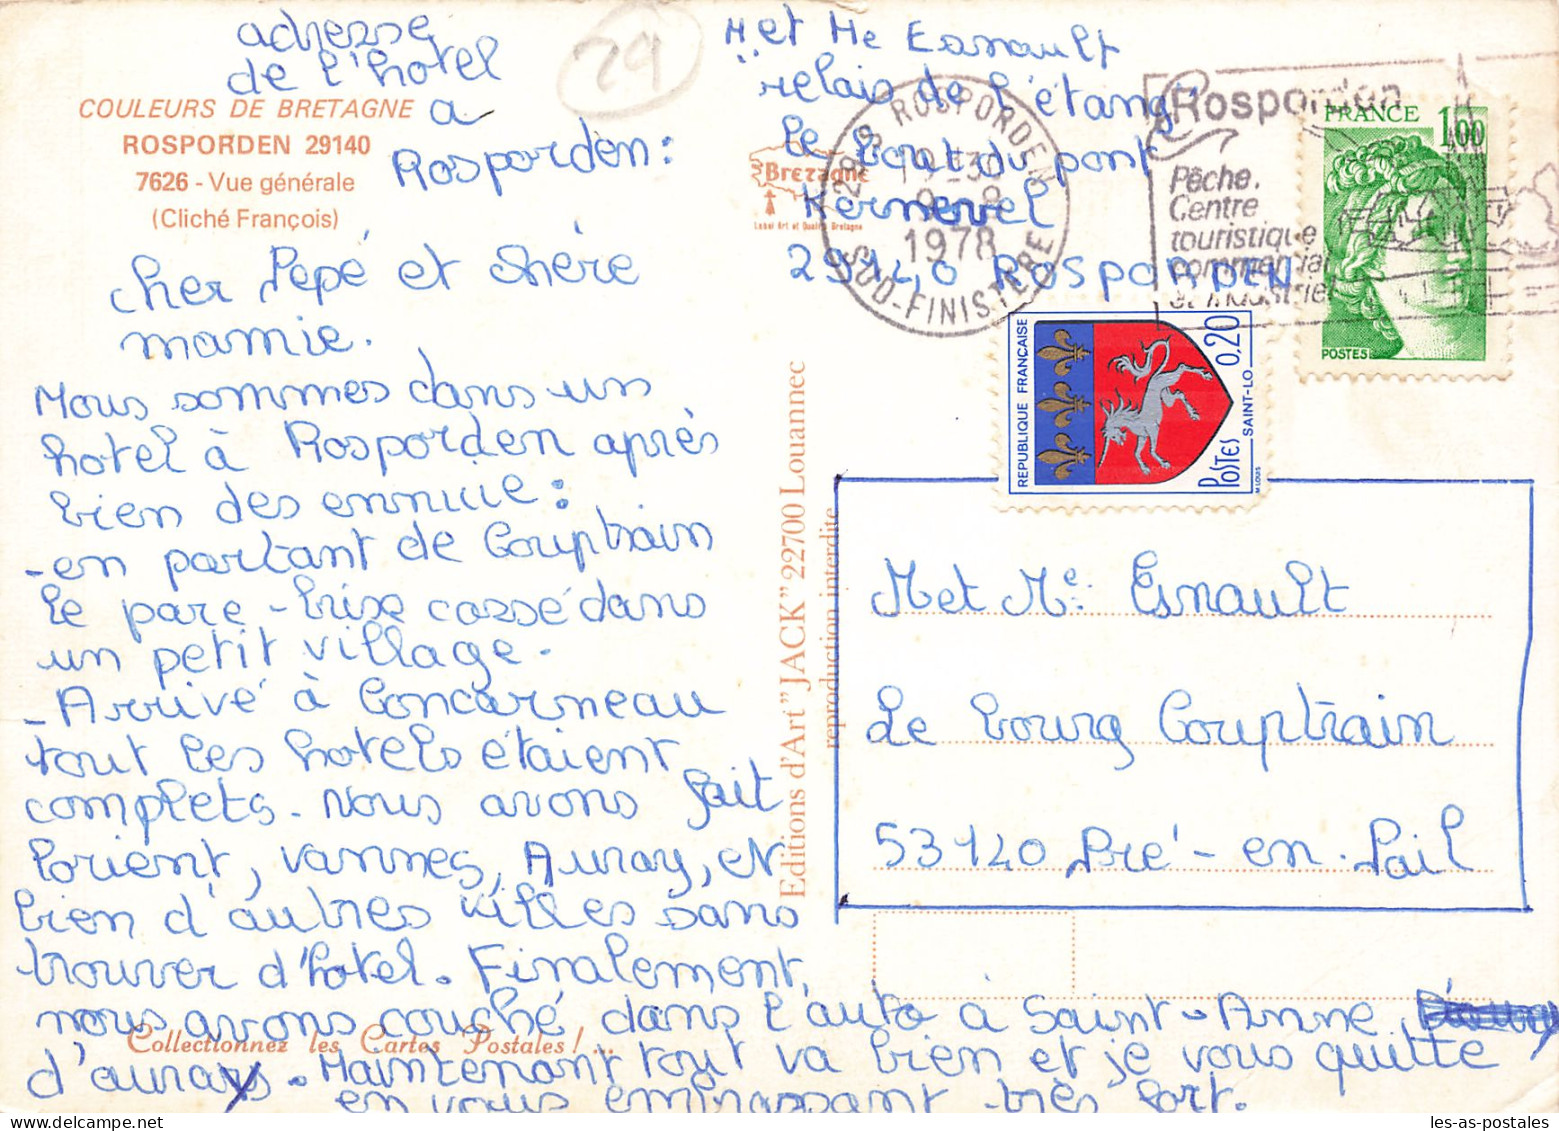 adresse
de l'hotel
a
Rosporden :
29
COULEURS DE BRETAGNE
ROSPORDEN 29140
7626 - Vue générale
(Cliché François)
M et Me Esnault
relais de l'étang
Le bout du pont
Kernevel
29140 ROSPORDEN
Bretagne
Label Art et Qualité Bretagne
29 ROSPORDEN
1978
SUD-FINISTERE
Rosporden
Pêche.
Centre
touristique
commercial
et industriel
FRANCE 1,00
POSTES
REPUBLIQUE FRANÇAISE
0,20
SAINT-LO
POSTES
M. LOUIS
cher Pepé et chère
mamie.
Nous sommes dans un
hotel à Rosporden après
bien des ennuie :
- en partant de Couptrain
le pare-brise cassé dans
un petit village.
- Arrivé à Concarneau
tout les hotels étaient
complets. Nous avons fait
Lorient, Vannes, Auray, et
bien d'autres villes sans
trouver d'hotel. Finalement,
nous avons couché dans l'auto à Saint-Anne
d'auray. Maintenant tout va bien et je vous quitte
en vous embrassant très fort.
Editions d'Art "JACK" 22700 Louannec
reproduction interdite
M et Me. Esnault
Le bourg Couptrain
53140 Pré-en-Pail
Collectionnez les Cartes Postales ! ...
les-as-postales